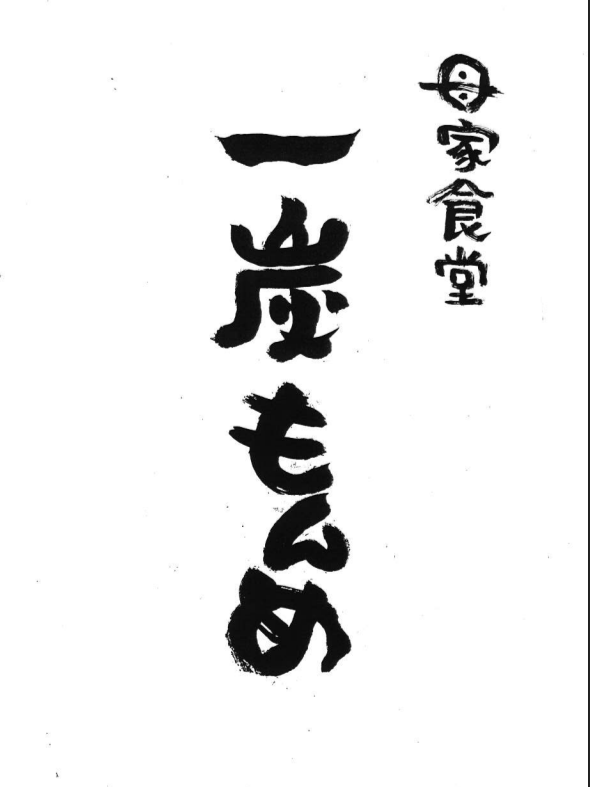 母家食堂
一炭もんめ